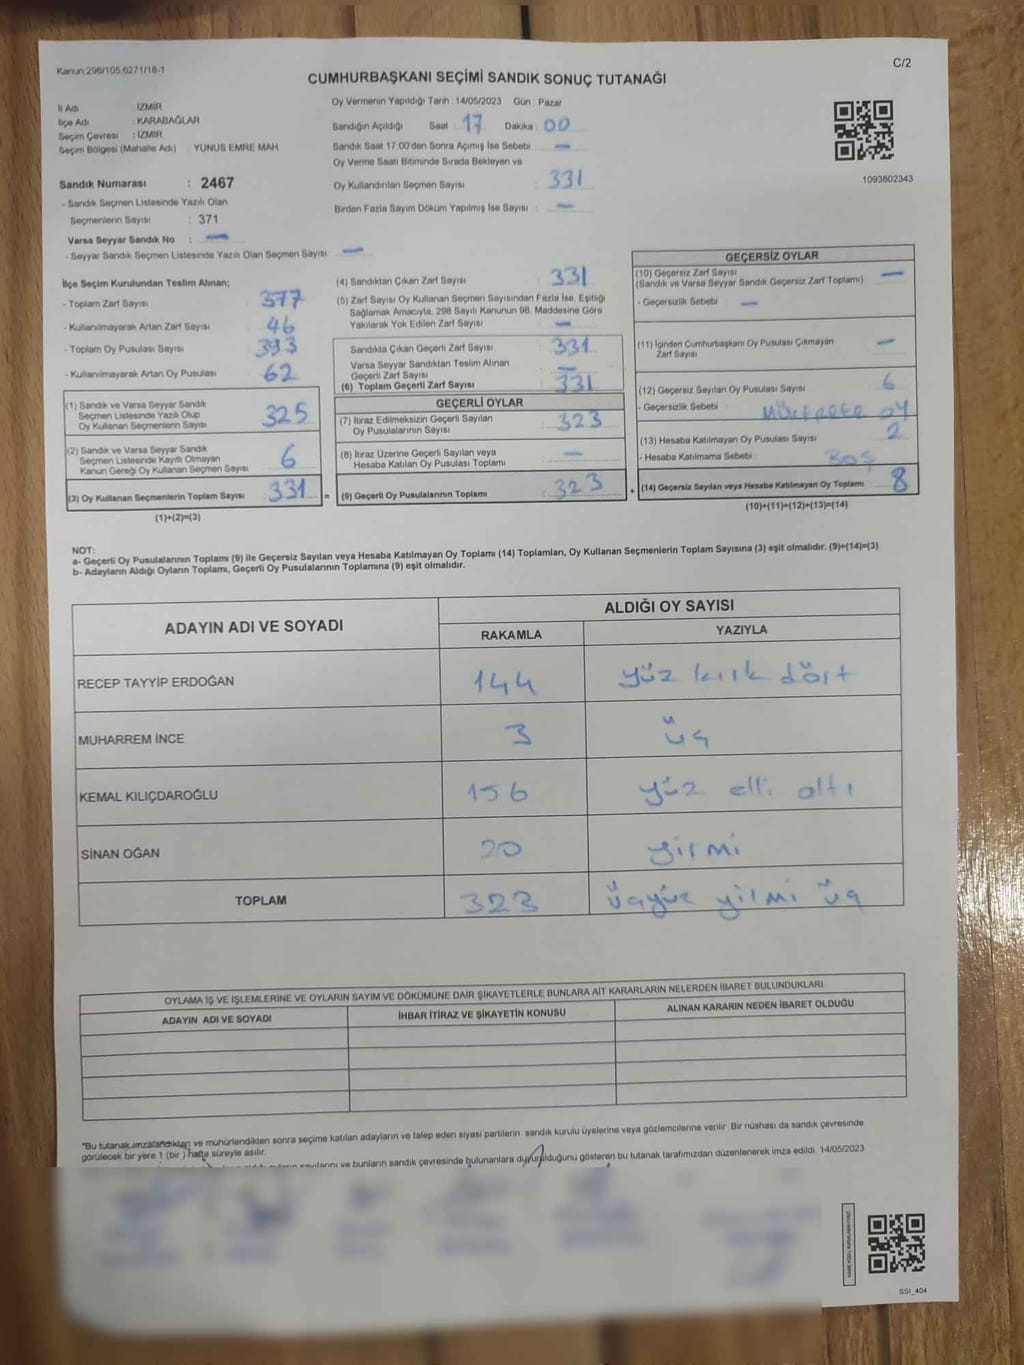 Kanun:298/105,6271/18-1
C/2
CUMHURBAŞKANI SEÇİMİ SANDIK SONUÇ TUTANAĞI
İl Adı : İZMİR
İlçe Adı : KARABAĞLAR
Seçim Çevresi : İZMİR
Seçim Bölgesi (Mahalle Adı) : YUNUS EMRE MAH
Sandık Numarası : 2467
- Sandık Seçmen Listesinde Yazılı Olan
Seçmenlerin Sayısı : 371
Varsa Seyyar Sandık No : —
- Seyyar Sandık Seçmen Listesinde Yazılı Olan Seçmen Sayısı —
Oy Vermenin Yapıldığı Tarih :14/05/2023 Gün : Pazar
Sandığın Açıldığı Saat : 17 Dakika : 00
Sandık Saat 17.00'den Sonra Açılmış İse Sebebi : —
Oy Verme Saati Bitiminde Sırada Bekleyen ve
Oy Kullandırılan Seçmen Sayısı : 331
Birden Fazla Sayım Döküm Yapılmış İse Sayısı : —
1093802343
İlçe Seçim Kurulundan Teslim Alınan;
- Toplam Zarf Sayısı 377
- Kullanılmayarak Artan Zarf Sayısı 46
- Toplam Oy Pusulası Sayısı 393
- Kullanılmayarak Artan Oy Pusulası 62
(1) Sandık ve Varsa Seyyar Sandık
Seçmen Listesinde Yazılı Olup
Oy Kullanan Seçmenlerin Sayısı 325
(2) Sandık ve Varsa Seyyar Sandık
Seçmen Listesinde Kayıtlı Olmayan
Kanun Gereği Oy Kullanan Seçmen Sayısı 6
(3) Oy Kullanan Seçmenlerin Toplam Sayısı 331 =
(1)+(2)=(3)
(4) Sandıktan Çıkan Zarf Sayısı 331
(5) Zarf Sayısı Oy Kullanan Seçmen Sayısından Fazla İse, Eşitliği
Sağlamak Amacıyla, 298 Sayılı Kanunun 98. Maddesine Göre
Yakılarak Yok Edilen Zarf Sayısı : —
Sandıkta Çıkan Geçerli Zarf Sayısı 331
Varsa Seyyar Sandıktan Teslim Alınan
Geçerli Zarf Sayısı —
(6) Toplam Geçerli Zarf Sayısı 331
GEÇERLİ OYLAR
(7) İtiraz Edilmeksizin Geçerli Sayılan
Oy Pusulalarının Sayısı : 323
(8) İtiraz Üzerine Geçerli Sayılan veya
Hesaba Katılan Oy Pusulası Toplamı : —
(9) Geçerli Oy Pusulalarının Toplamı : 323 +
GEÇERSİZ OYLAR
(10) Geçersiz Zarf Sayısı
(Sandık ve Varsa Seyyar Sandık Geçersiz Zarf Toplamı) —
- Geçersizlik Sebebi : —
(11) İçinden Cumhurbaşkanı Oy Pusulası Çıkmayan
Zarf Sayısı —
(12) Geçersiz Sayılan Oy Pusulası Sayısı 6
- Geçersizlik Sebebi : OY
(13) Hesaba Katılmayan Oy Pusulası Sayısı 2
- Hesaba Katılmama Sebebi : BOŞ
(14) Geçersiz Sayılan veya Hesaba Katılmayan Oy Toplamı 8
(10)+(11)+(12)+(13)=(14)
NOT:
a- Geçerli Oy Pusulalarının Toplamı (9) ile Geçersiz Sayılan veya Hesaba Katılmayan Oy Toplamı (14) Toplamları, Oy Kullanan Seçmenlerin Toplam Sayısına (3) eşit olmalıdır. (9)+(14)=(3)
b- Adayların Aldığı Oyların Toplamı, Geçerli Oy Pusulalarının Toplamına (9) eşit olmalıdır.
ADAYIN ADI VE SOYADI ALDIĞI OY SAYISI
RAKAMLA YAZIYLA
RECEP TAYYİP ERDOĞAN 144 yüz kırk dört
MUHARREM İNCE 3 üç
KEMAL KILIÇDAROĞLU 156 yüz elli altı
SİNAN OĞAN 20 yirmi
TOPLAM 323 üçyüz yirmi üç
OYLAMA İŞ VE İŞLEMLERİNE VE OYLARIN SAYIM VE DÖKÜMÜNE DAİR ŞİKAYETLERLE BUNLARA AİT KARARLARIN NELERDEN İBARET BULUNDUKLARI
ADAYIN ADI VE SOYADI İHBAR İTİRAZ VE ŞİKAYETİN KONUSU ALINAN KARARIN NEDEN İBARET OLDUĞU
*Bu tutanak imzalandıktan ve mühürlendikten sonra seçime katılan adayların ve talep eden siyasi partilerin sandık kurulu üyelerine veya gözlemcilerine verilir. Bir nüshası da sandık çevresinde
görülecek bir yere 1 (bir ) hafta süreyle asılır.
ve bunların sandık çevresinde bulunanlara duyurulduğunu gösteren bu tutanak tarafımızdan düzenlenerek imza edildi. 14/05/2023
SSİ_404